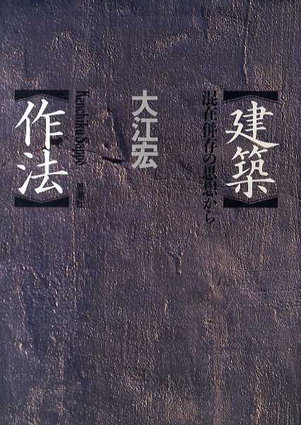 【建築】
混在併存の思想から
大江宏
【作法】
Kenchiku Sappō
思潮社